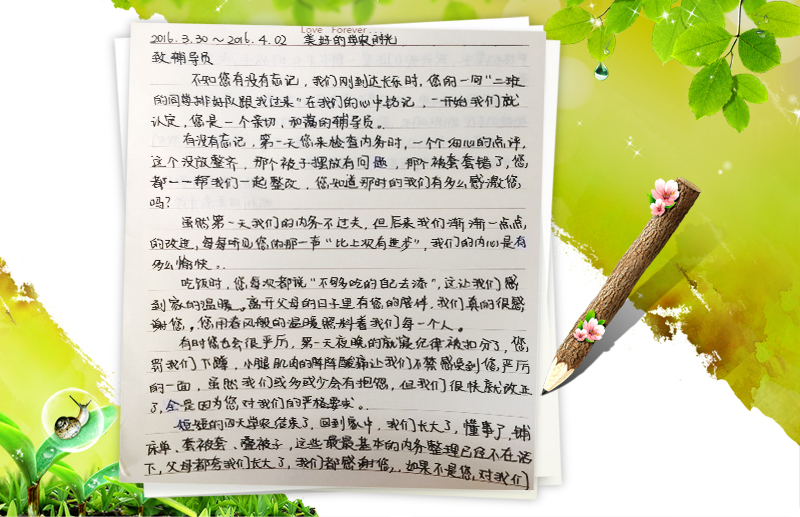 Love Forever...
2016.3.30～2016.4.02 美好的学农时光
致辅导员
不知您有没有忘记，我们刚到达长乐时，您的一句“二班
的同学排好队跟我过来”在我们的心中铭记，一开始我们就
认定，您是一个亲切，和蔼的辅导员。
有没有忘记，第一天您来检查内务时，一个个细心的点评，
这个没放整齐，那个被子摆放有问题，那个被套套错了，您
都一一帮我们一起整改，您知道那时的我们有多么感激您
吗？
虽然第一天我们的内务不过关，但后来我们渐渐一点点
的改进，每每听见您的那一声“比上次有进步”，我们的内心是有
多么愉快。
吃饭时，您每次都说“不够吃的自己去添”，这让我们感
到家的温暖。离开父母的日子里有您的陪伴，我们真的很感
谢您，您用春风般的温暖照料着我们每一个人。
有时您也会很严厉，第一天夜晚的就寝纪律被扣分了，您
罚我们下蹲，小腿肌肉的阵阵酸痛让我们不禁感受到您严厉
的一面，虽然我们或多或少会有抱怨，但我们很快就改正
了，全是因为您对我们的严格要求。
短短的四天学农结束了，回到家中，我们长大了，懂事了，铺
床单、套被套、叠被子，这些最最基本的内务整理已经不在话
下，父母都夸我们长大了，我们都感谢您，如果不是您，对我们